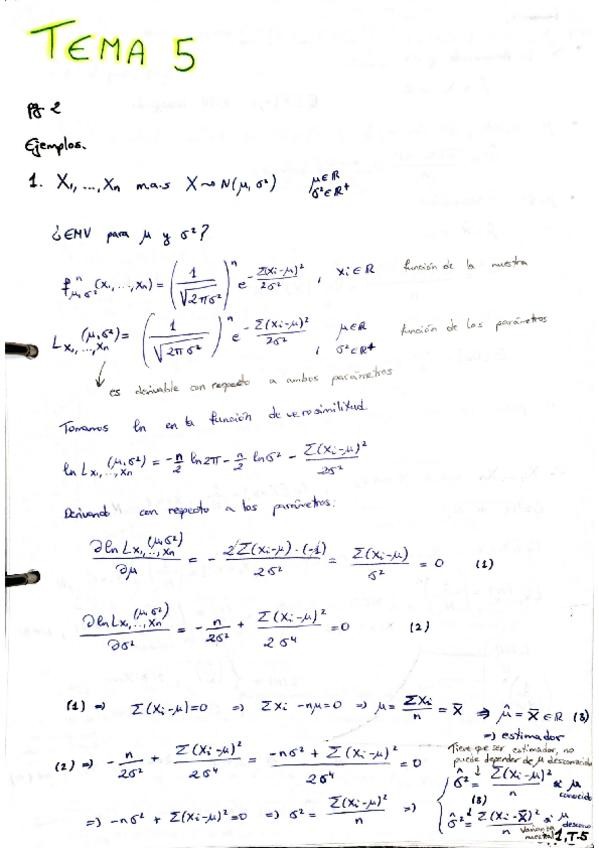 TEMA 5
pg 2
Ejemplos.
1. X₁, ..., Xn m.a.s X ~> N(μ, σ²) μ∈ℝ
σ²∈ℝ⁺
¿EMV para μ y σ²?
fⁿ_{μ,σ²}(x₁, ..., xn) = (1/√(2πσ²))ⁿ e^{-Σ(xi-μ)²/2σ²}, xi∈ℝ función de la muestra
L_{x₁,...,xn}(μ,σ²) = (1/√(2πσ²))ⁿ e^{-Σ(xi-μ)²/2σ²}, μ∈ℝ función de los parámetros
σ²∈ℝ⁺
↓ es derivable con respecto a ambos parámetros
Tomamos ln en la función de verosimilitud
ln L_{x₁,...,xn}(μ,σ²) = -n/2 ln2π - n/2 lnσ² - Σ(xi-μ)²/2σ²
Derivando con respecto a los parámetros:
∂ln L_{x₁,...,xn}(μ,σ²)/∂μ = - 2Σ(xi-μ)·(-1)/2σ² = Σ(xi-μ)/σ² = 0 (1)
∂ln L_{x₁,...,xn}(μ,σ²)/∂σ² = -n/2σ² + Σ(xi-μ)²/2σ⁴ = 0 (2)
(1) ⇒ Σ(xi-μ)=0 ⇒ Σxi - nμ=0 ⇒ μ = Σxi/n = X̄ ⇒ μ̂ = X̄ ∈ ℝ (3)
⇒ estimador
Tiene que ser estimador, no
puede depender de μ desconocido
(2) ⇒ -n/2σ² + Σ(xi-μ)²/2σ⁴ = -nσ² + Σ(xi-μ)²/2σ⁴ = 0
σ̂² = Σ(xi-μ)²/n si μ
conocido
(3)
⇒ -nσ² + Σ(xi-μ)²=0 ⇒ σ² = Σ(xi-μ)²/n ⇒
σ̂² = Σ(xi-X̄)²/n si μ
descono
varianza
muestral
1,T-5